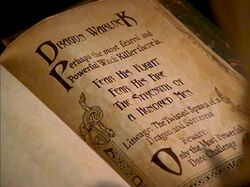 Dragon Warlock
Perhaps the most feared and
Powerful Witch Killer there is.
From His Flight
From His Fire
The Strength of
a Hundred Men
Lineage: The Twisted Spawn of a
Dragon and Sorceress
Beware:
Only the Most Powerful
Dare Challenge